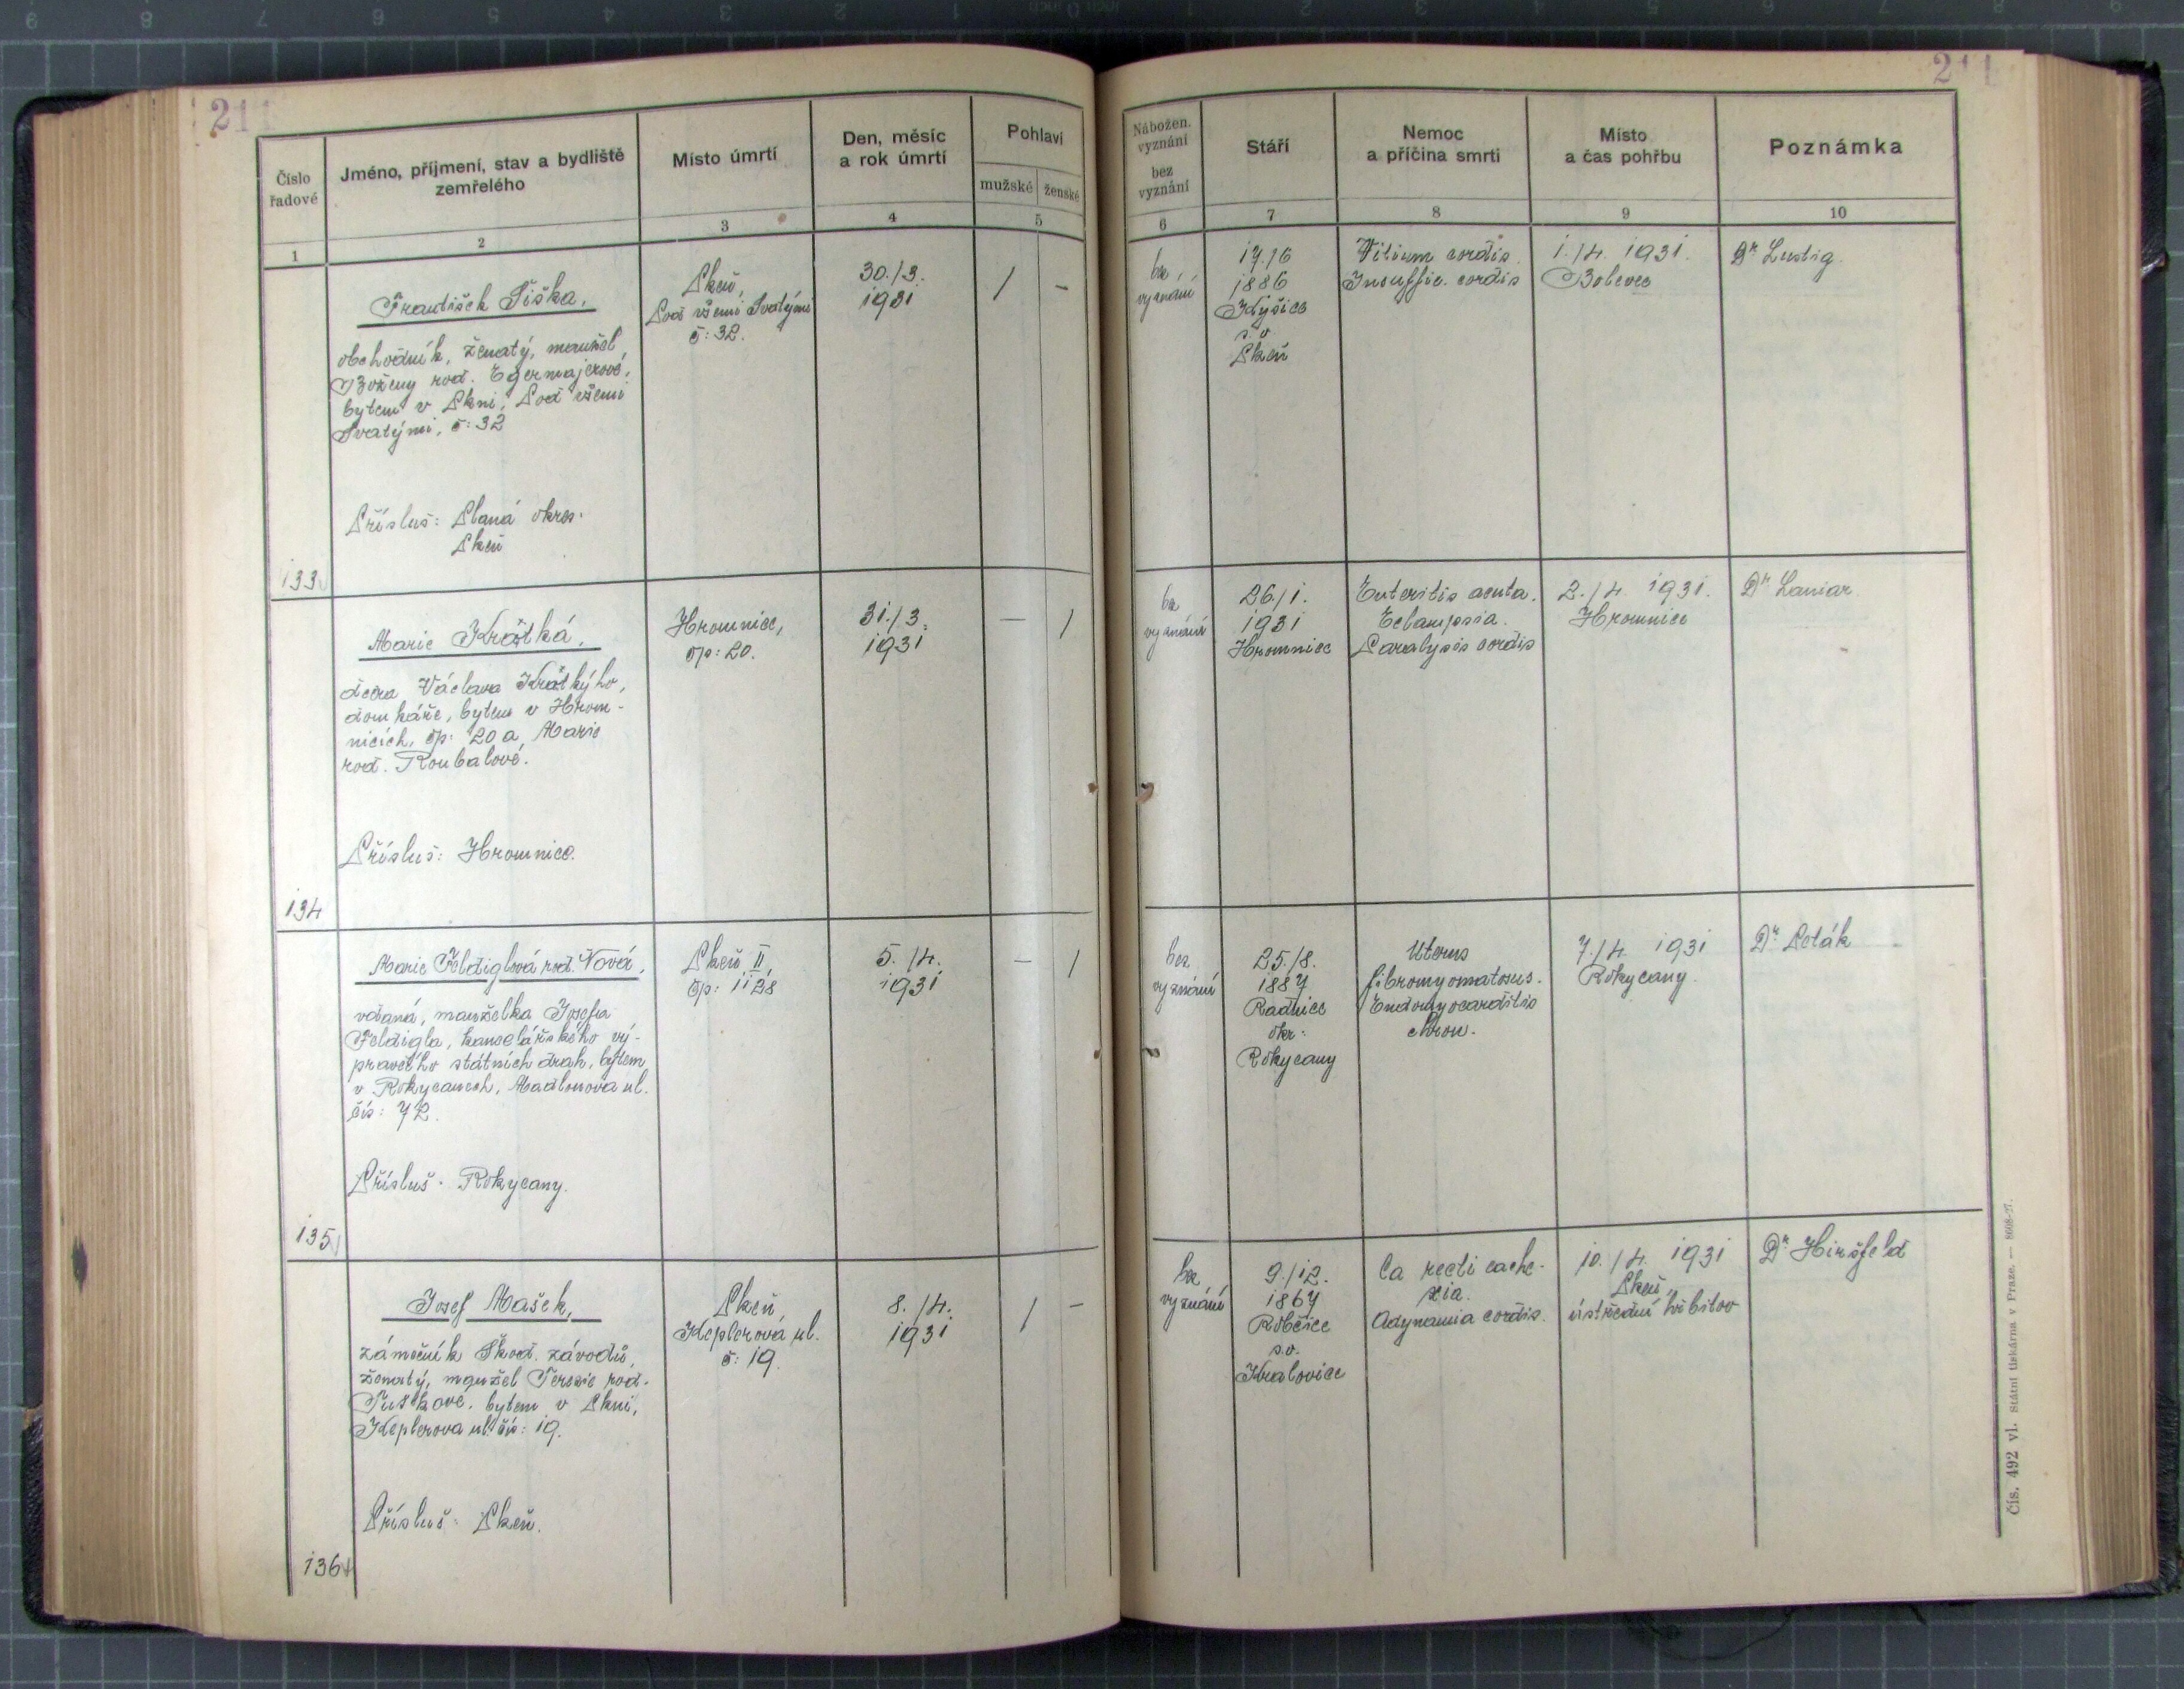 211
211
Číslo
řadové
Jméno, příjmení, stav a bydliště
zemřelého
Místo úmrtí
Den, měsíc
a rok úmrtí
Pohlaví
mužské
ženské
1
2
3
4
5
Nábožen.
vyznání
bez
vyznání
Stáří
Nemoc
a příčina smrti
Místo
a čas pohřbu
Poznámka
6
7
8
9
10
133
František Šiška,
obchodník, ženatý, manžel
Boženy roz. Egermajerové,
bytem v Plzni, Pod všemi
Svatými, č: 32
Přísluš: Planá okres.
Plzeň
Plzeň,
Pod všemi Svatými
č: 32.
30./3.
1931
/
–
bez
vyznání
17./6
1886
Kyšice
s. o.
Plzeň
Vitium cordis.
Insuffic. cordis
1./4. 1931.
Bolevec
Dr Lustig.
134
Marie Krátká,
dcera Václava Krátkýho,
domkáře, bytem v Hrom-
nicích, čp: 20 a Marie
rod. Roubalové.
Přísluš: Hromnice.
Hromnice,
čp: 20.
31./3.
1931
–
/
bez
vyznání
26./1.
1931
Hromnice
Enteritis acuta.
Eclampsia.
Paralysis cordis
2./4. 1931.
Hromnice
Dr
135
Marie Feldiglová rod. Nová,
vdaná, manželka Josefa
Feldigla, kancelářského vý-
pravčího státních drah, bytem
v Rokycanech, Madlonova ul.
čís: 72.
Přísluš. Rokycany.
Plzeň II,
čp: 1128
5./4.
1931
–
/
bez
vyznání
25./8.
1887
Radnice
okr:
Rokycany
Uterus
fibromyomatosus.
Endomyocarditis
chron.
7./4. 1931
Rokycany.
Dr. Polák
136
Josef Mašek,
zámečník Škod. závodů,
ženatý, manžel Terezie rod.
bytem v Plzni,
Keplerova ul čís: 19.
Přísluš: Plzeň.
Plzeň
Keplerová ul.
č: 19.
8./4.
1931
/
–
bez
vyznání
9./12.
1867
Robčice
s.o.
Kralovice
Ca recti cache-
xia.
Adynamia cordis.
10./4. 1931
Plzeň,
ústřední hřbitov
Dr. Hiršfeld
Čís. 492 vl. Státní tiskárna v Praze. — 8608-27.